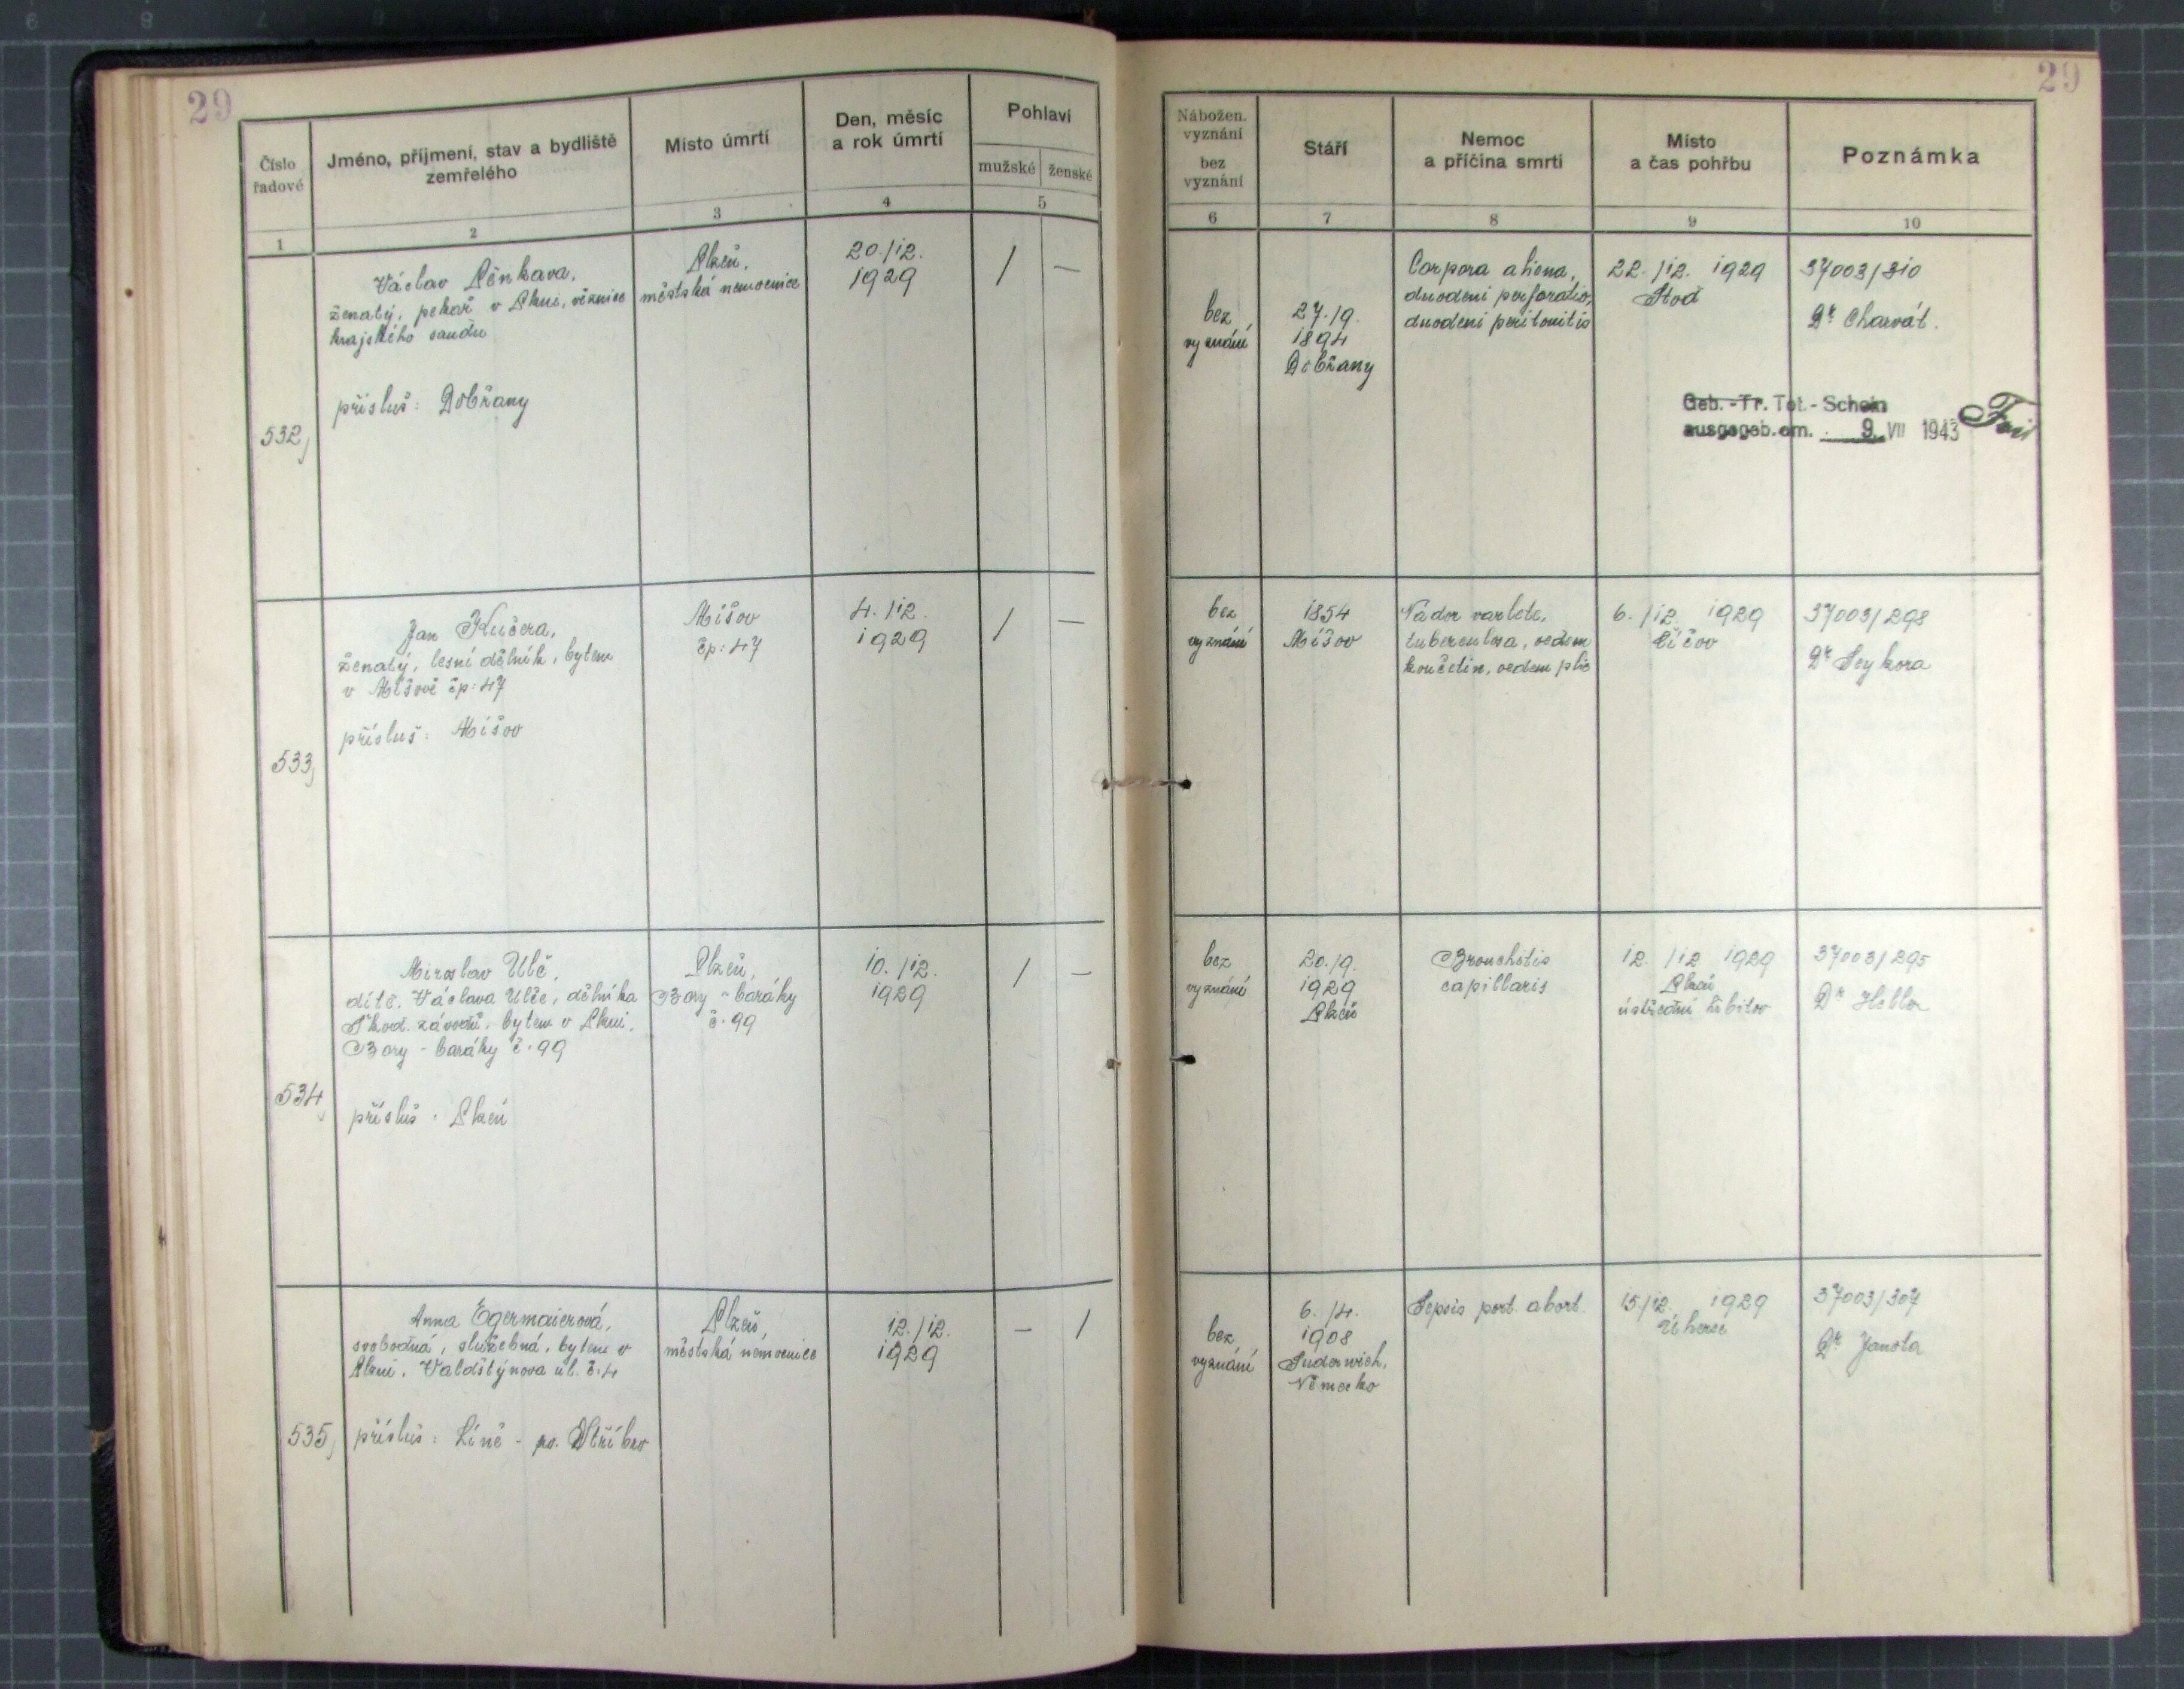 29
29
Číslo řadové
Jméno, příjmení, stav a bydliště
zemřelého
Místo úmrtí
Den, měsíc
a rok úmrtí
Pohlaví
mužské
ženské
1
2
3
4
5
Nábožen.
vyznání
bez
vyznání
Stáří
Nemoc
a příčina smrti
Místo
a čas pohřbu
Poznámka
6
7
8
9
10
532,
Václav Pěnkava,
ženatý, pekař v Plzni, věznice
krajského soudu
přísluš: Dobřany
Plzeň,
městská nemocnice
20./12.
1929
/
—
bez
vyznání
27./9.
1894
Dobřany
Corpora aliena,
duodeni perforatio,
duodeni peritonitis
22./12. 1929
Stod
37003/310
Dr Charvát.
Geb.-Tr. Tot.-Schein
ausgegeb. am. 9. VII 1943
533,
Jan Kučera,
ženatý, lesní dělník, bytem
v Míšově čp: 47
přísluš: Míšov
Míšov
čp: 47
4./12.
1929
/
—
bez
vyznání
1854
Míšov
Nádor varlete,
tuberculosa, oedem
končetin, oedem plic
6./12. 1929
Číčov
37003/298
Dr Seykora
534,
Miroslav Ulč,
dítě Václava Ulče, dělníka
Škod. závodů, bytem v Plzni,
Bory - baráky č. 99
přísluš: Plzeň
Plzeň,
Bory - baráky
č. 99
10./12.
1929
/
—
bez
vyznání
20./9.
1929
Plzeň
Bronchitis
capillaris
12./12 1929
Plzeň
ústřední hřbitov
37003/295
Dr Heller
535,
Anna Egermaierová,
svobodná, služebná, bytem v
Plzni, Valdštýnova ul. č. 4
přísluš: Líně - po. Stříbro
Plzeň,
městská nemocnice
12./12.
1929
—
/
bez
vyznání
6./4.
1908
Suderwich,
Německo
Sepsis port. abort.
15./12. 1929
Úherce
37003/307
Dr Janota